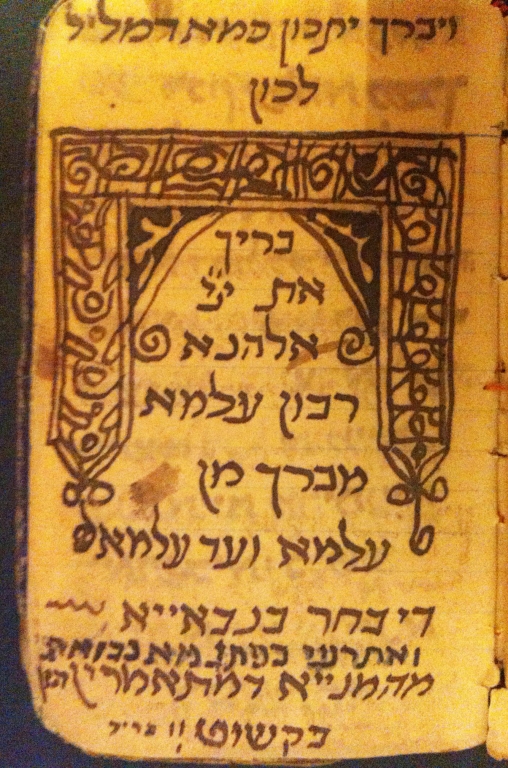 ויברך יתכון כמא דמליל
לכון
בריך
את ייי
אלהנא
רבון עלמא
מברך מן
עלמא ועד עלמא
די בחר בנבאייא
ואתרעי
מהמנייא דמתאמרין
בקשוט